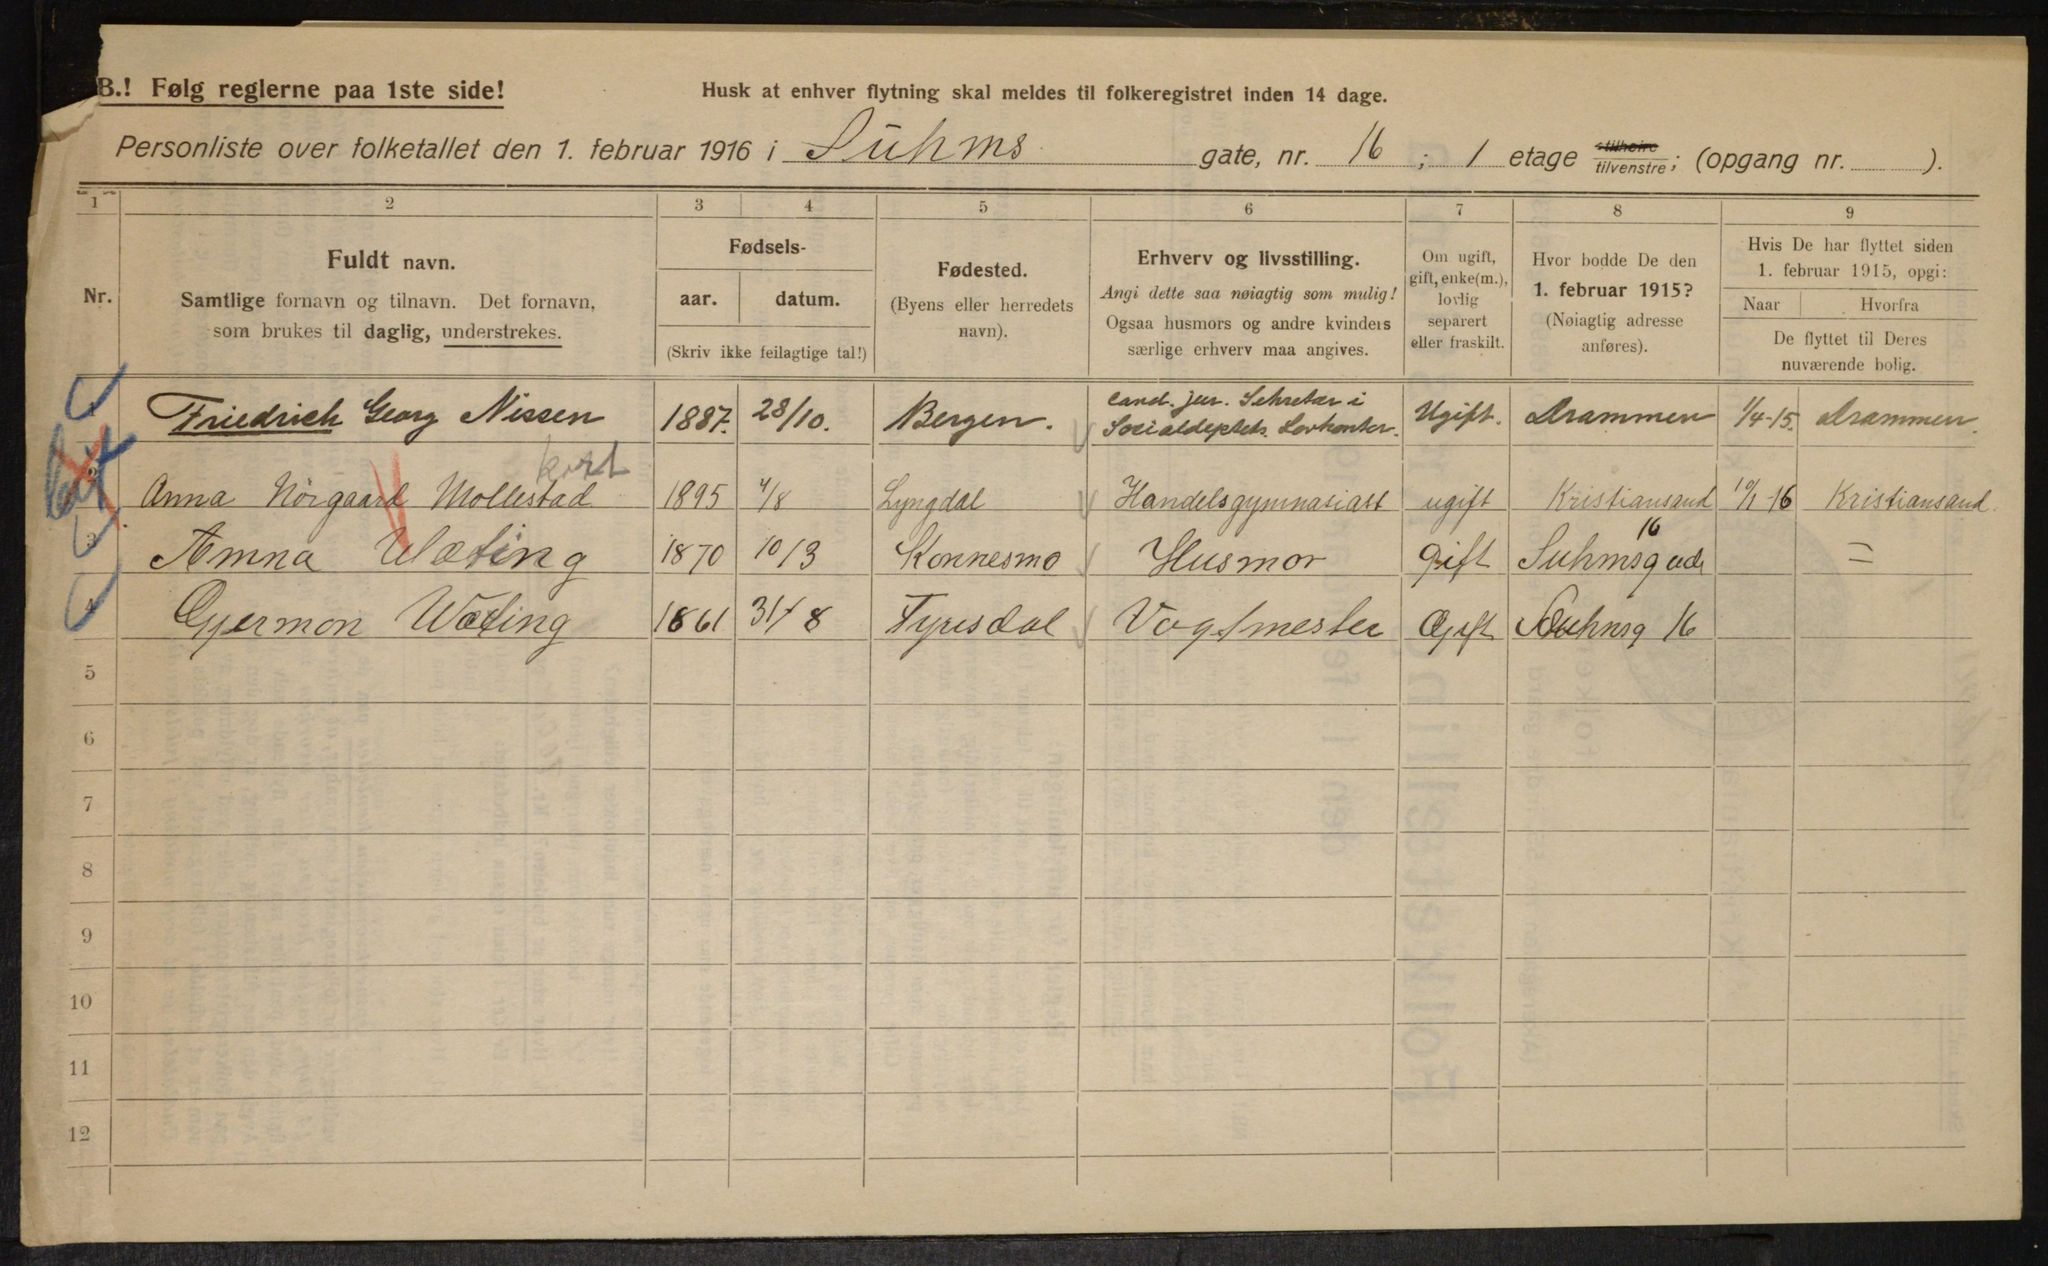 B.! Følg reglerne paa 1ste side!
Husk at enhver flytning skal meldes til folkeregistret inden 14 dage.
Personliste over folketallet den 1. februar 1916 i Suhms gate, nr. 16 ; 1 etage tilhøire/tilvenstre; (opgang nr. ).
1 2 3 4 5 6 7 8 9
Nr.
Fuldt navn.
Samtlige fornavn og tilnavn. Det fornavn,
som brukes til daglig, understrekes.
Fødsels-
aar. datum.
(Skriv ikke feilagtige tal!)
Fødested.
(Byens eller herredets
navn).
Erhverv og livsstilling.
Angi dette saa nøiagtig som mulig!
Ogsaa husmors og andre kvinders
særlige erhverv maa angives.
Om ugift,
gift, enke(m.),
lovlig
separert
eller fraskilt.
Hvor bodde De den
1. februar 1915?
(Nøiagtig adresse
anføres).
Hvis De har flyttet siden
1. februar 1915, opgi:
Naar Hvorfra
De flyttet til Deres
nuværende bolig.
Friedrich Georg Nissen 1887. 28/10. Bergen. cand. jur. Sekretær i Socialdeptets. Lovkontor. Ugift. Drammen 1/4-15. Drammen.
kort
2 Anna Nörgaard Mollestad 1895 4/8 Lyngdal Handelsgymnasiast ugift Kristiansand 10/1-16 Kristiansand.
3 Amna Wæting 1870 10/3 Konnesmo Husmor Gift Suhmsgade 16 =
4 Gjermon Wæting 1861 31/8 Fyresdal Vogtmester Gift Suhmsg 16
5
6
7
8
9
10
11
12